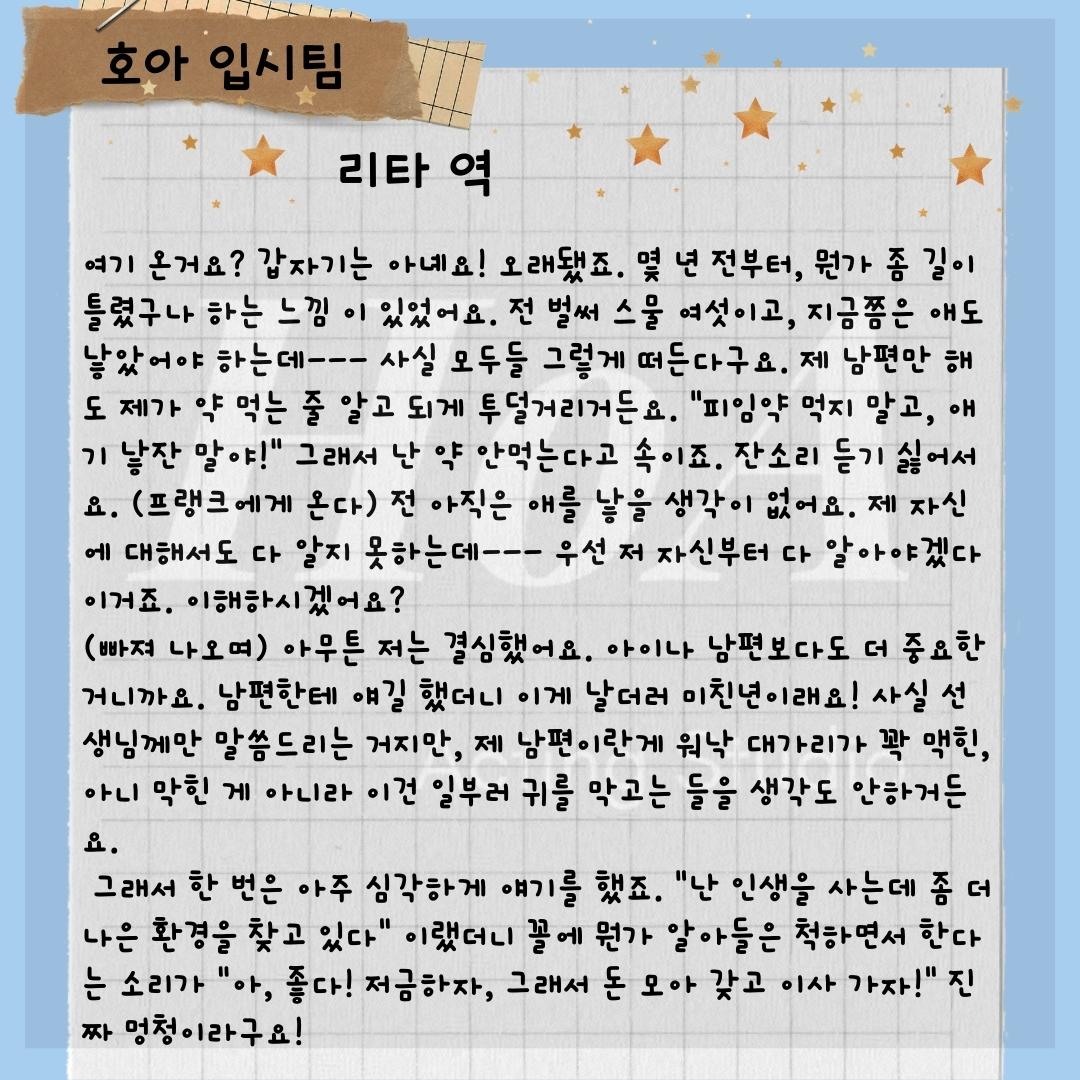 호아 입시팀
리타 역
여기 온거요? 갑자기는 아녜요! 오래됐죠. 몇 년 전부터, 뭔가 좀 길이
틀렸구나 하는 느낌 이 있었어요. 전 벌써 스물 여섯이고, 지금쯤은 애도
낳았어야 하는데--- 사실 모두들 그렇게 떠든다구요. 제 남편만 해
도 제가 약 먹는 줄 알고 되게 투덜거리거든요. "피임약 먹지 말고, 애
기 낳잔 말야!" 그래서 난 약 안먹는다고 속이죠. 잔소리 듣기 싫어서
요. (프랭크에게 온다) 전 아직은 애를 낳을 생각이 없어요. 제 자신
에 대해서도 다 알지 못하는데--- 우선 저 자신부터 다 알아야겠다
이거죠. 이해하시겠어요?
(빠져 나오며) 아무튼 저는 결심했어요. 아이나 남편보다도 더 중요한
거니까요. 남편한테 얘길 했더니 이게 날더러 미친년이래요! 사실 선
생님께만 말씀드리는 거지만, 제 남편이란게 워낙 대가리가 꽉 맥힌,
아니 막힌 게 아니라 이건 일부러 귀를 막고는 들을 생각도 안하거든
요.
그래서 한 번은 아주 심각하게 얘기를 했죠. "난 인생을 사는데 좀 더
나은 환경을 찾고 있다" 이랬더니 꼴에 뭔가 알아들은 척하면서 한다
는 소리가 "아, 좋다! 저금하자, 그래서 돈 모아 갖고 이사 가자!" 진
짜 멍청이라구요!
HoA
Acting Studio